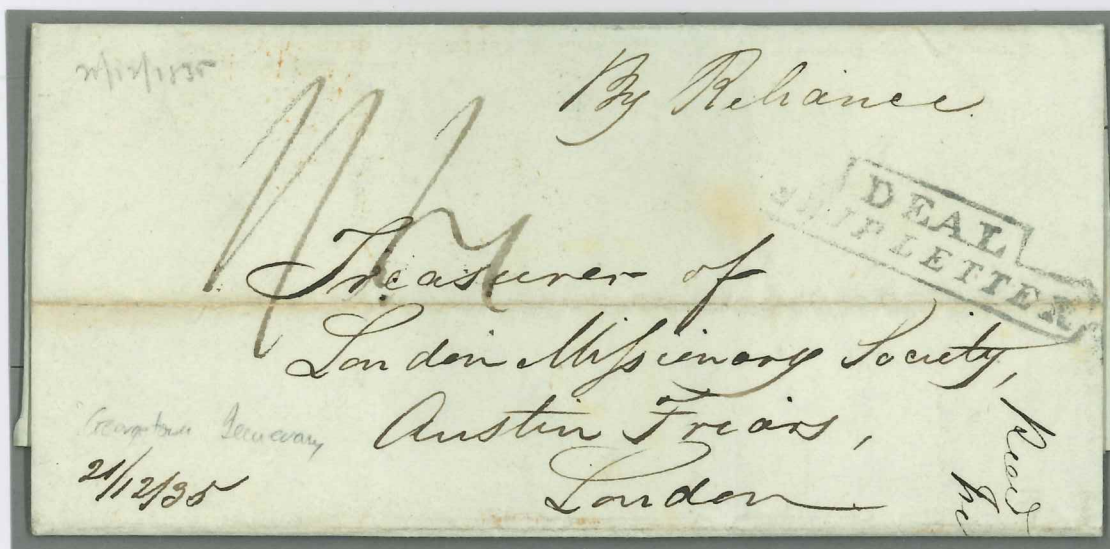 21/12/1835
By Reliance
DEAL
SHIP LETTER
Treasurer of
London Missionary Society,
Austin Friars,
London
Georgetown Demerary
21/12/35